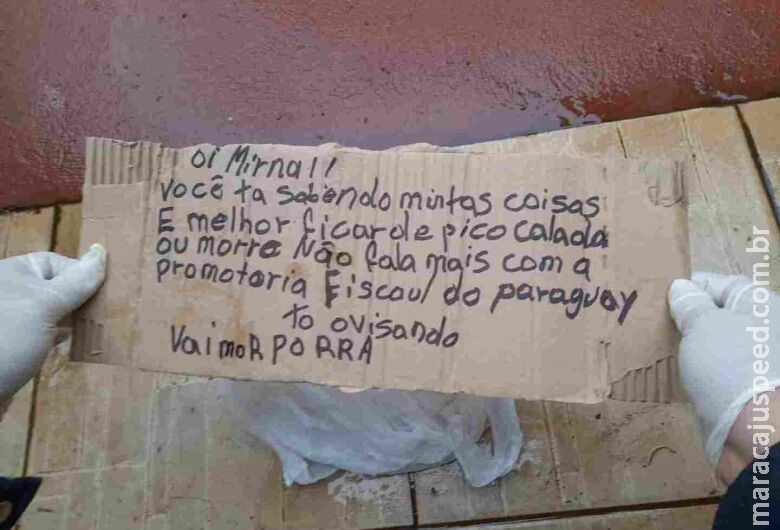 oi Mirna!!
você ta sabendo muntas coisas
E melhor ficar de pico calada
ou morre Não fala mais com a
promotoria Fiscaul do paraguay
to ovisando
Vai moR PORRA
maracajuspeed.com.br